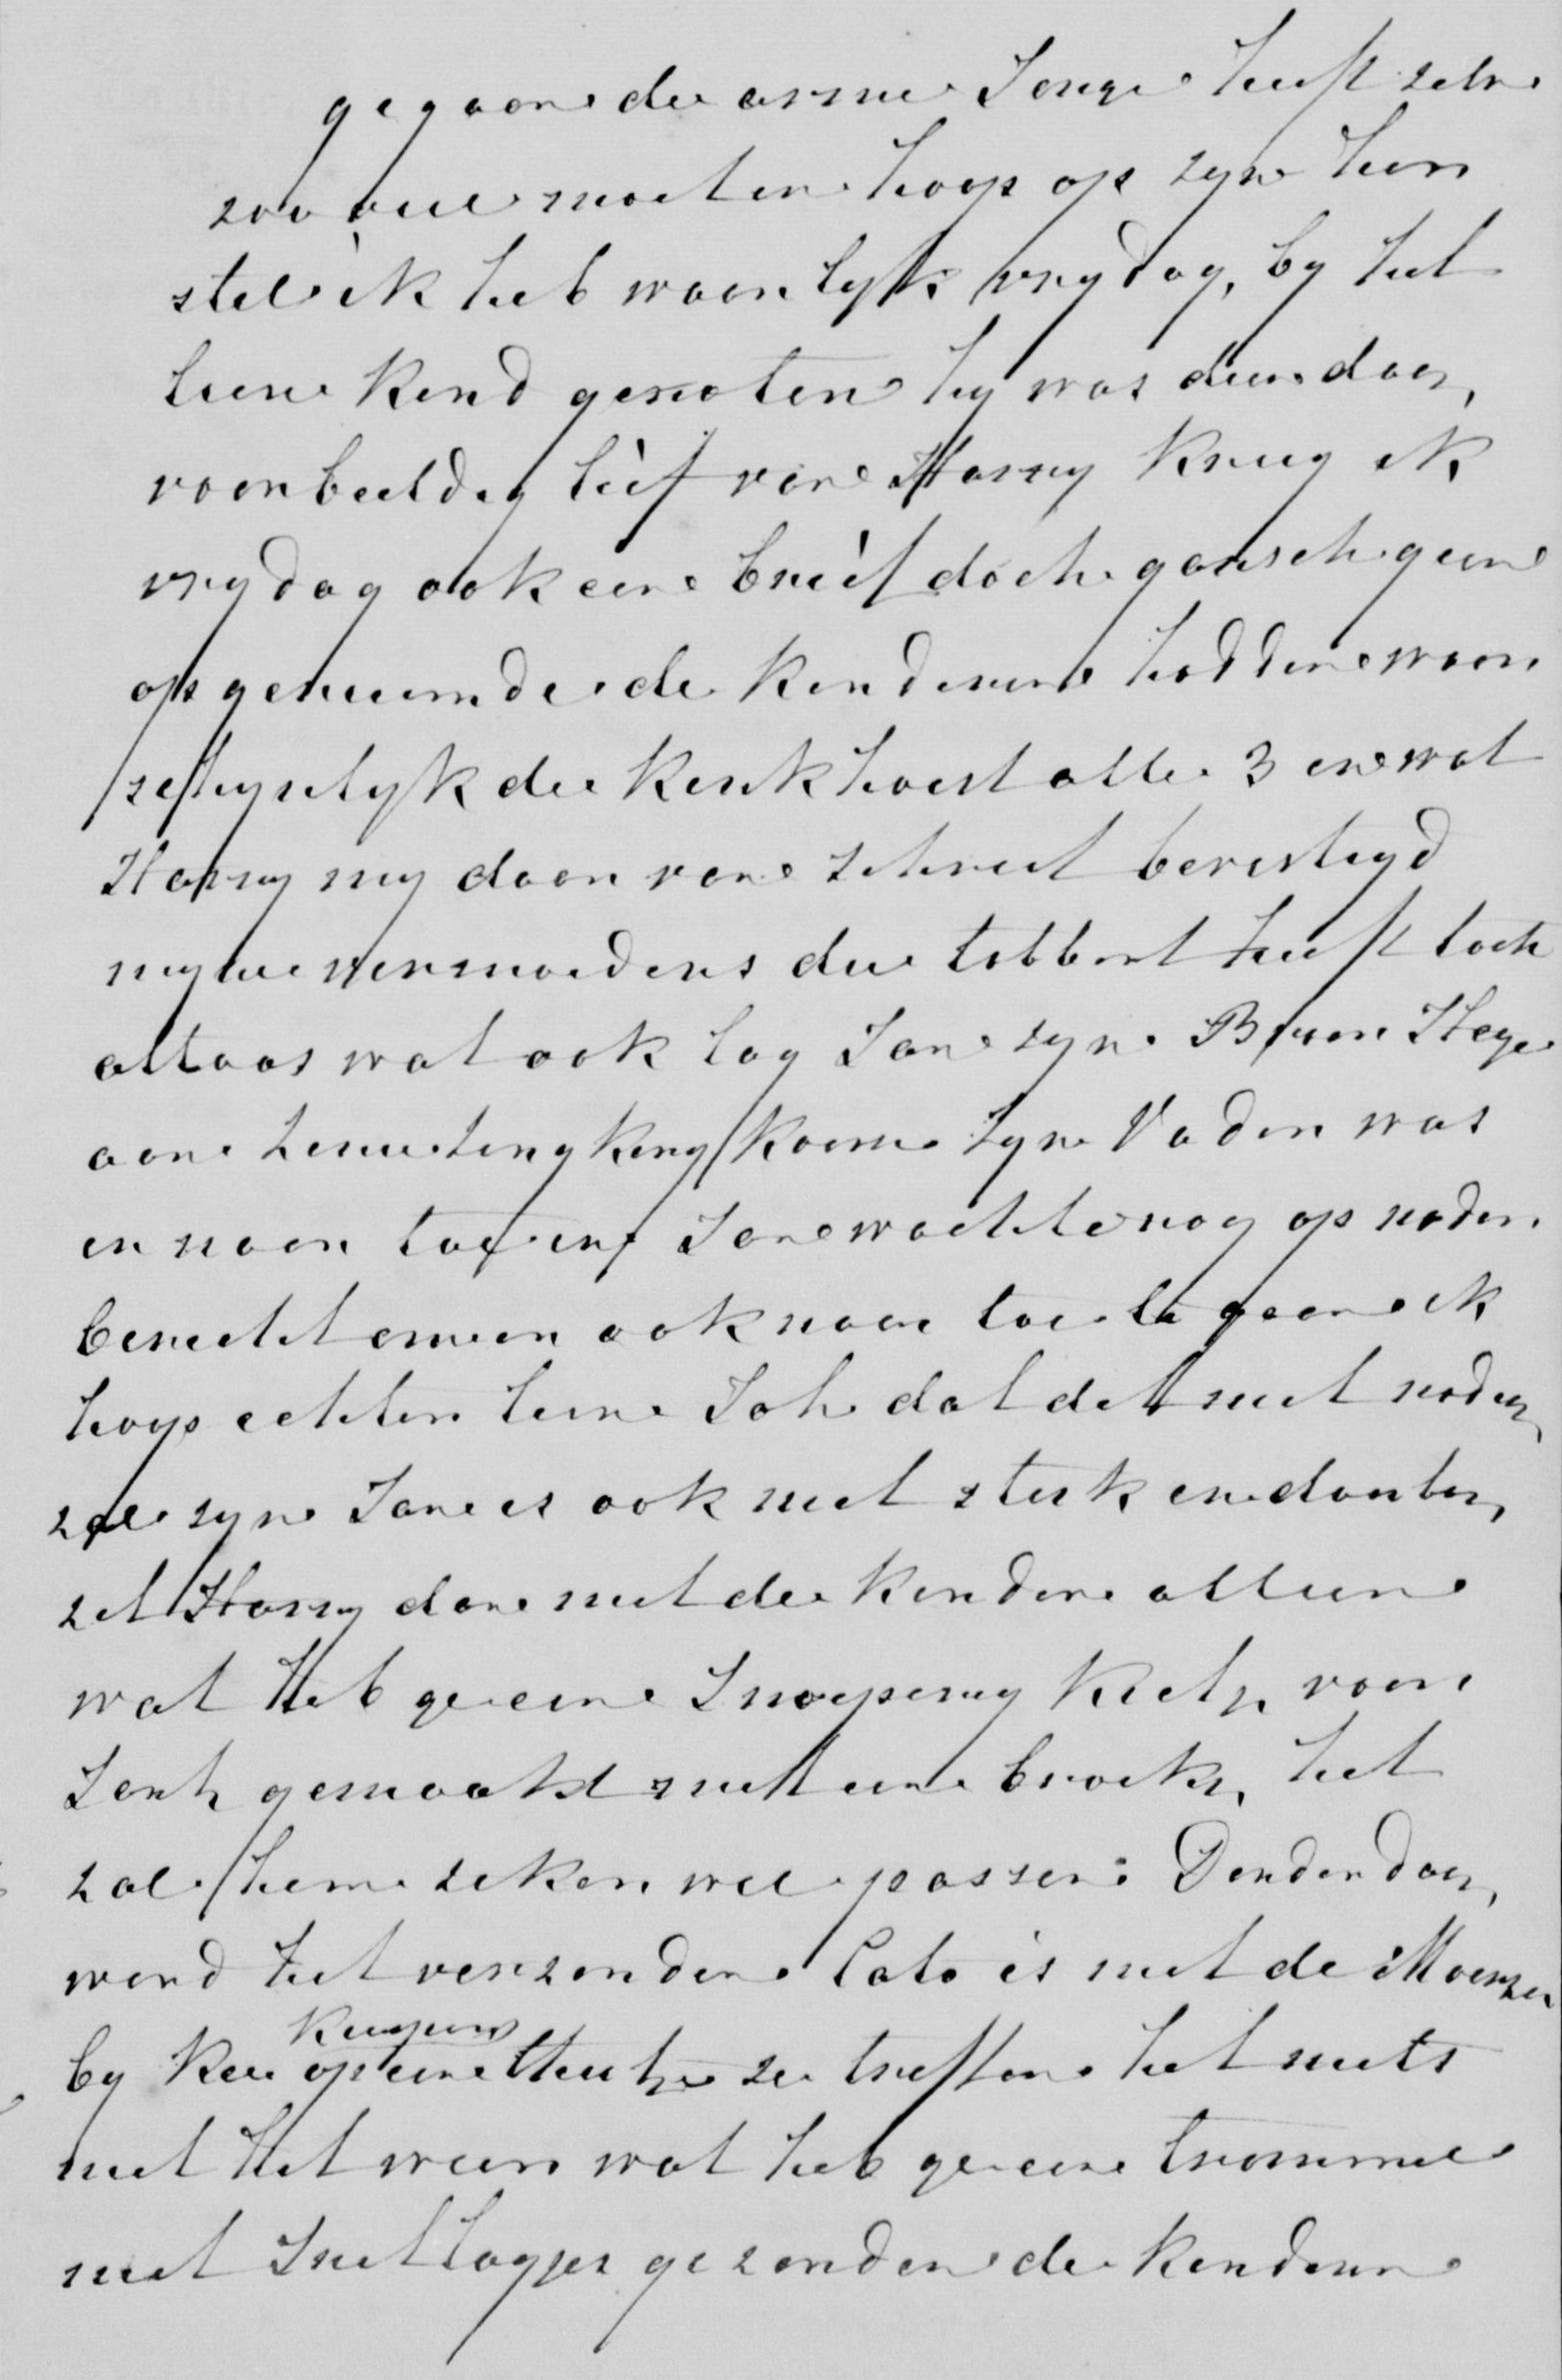 gegaan de arme Jonge heeft zelve
zoo veel moeten hoop op zyn her
stel ik heb waarlyk vrydag, by het
lieve Kind genoten hy was dien dag,
voorbeeldig lief van Harry Kreeg ik
vrydag ook een brief doch gansch geen
opgeruimde de Kinderen hadden waar
schynlyk de Kinkhoest alle 3 en wat
Harry my daar van schreef bevestigd
myne vermoedens die tobbert heeft toch
altoos wat ook lag Jan zyn Broer Hugo
aan Longontsteking Zyn Vader was
er naar toe en Jan wachtte nog op nader
bericht om er ook naar toe te gaan ik
hoop echter lieve Joh dat dit niet nodig
zal zyn Jan is ook niet sterk en dan
zit Harry dan met de Kinderen alleen
wat heb ge een Snoeperig Kieltje voor
gemaakt met een broekje, het
zal hem zeker wel passen: Donderdag
werd het verzonden Cato is met de
by Kee Kuypers op een ze treffen het niets
met het weer wat heb ge een trommel
met gezonden de Kinderen